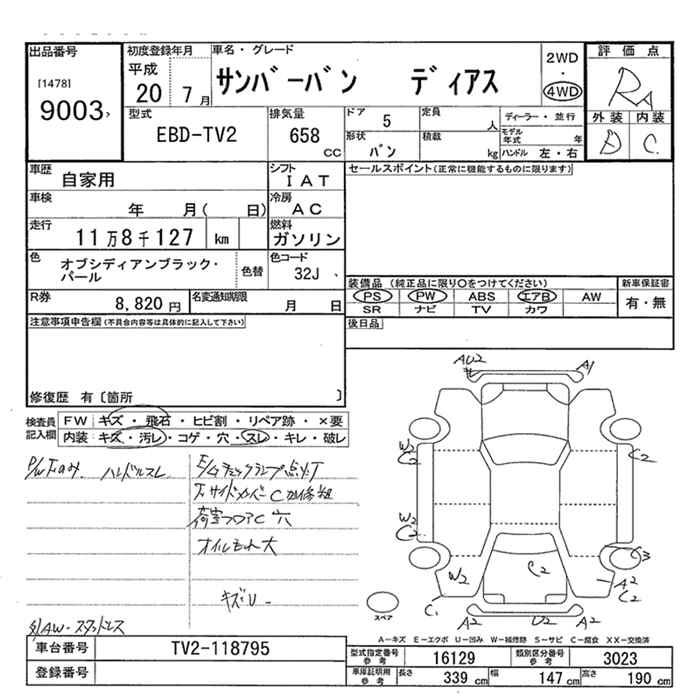 出品番号 初度登録年月 車名・グレード 2WD 評価点
[1478] 平成 サンバーバン ディアス ・ RA
9003 20 7月 4WD
型式 排気量 ドア 5 定員 人 ディーラー・並行 外装 内装
EBD-TV2 658 cc 形状 バン 積載 kg モデル年式 年 D C
ハンドル 左・右
車歴 自家用 シフト IAT セールスポイント(正常に機能するものに限ります)
車検 年 月( 日) 冷房 AC
走行 11万8千127 km 燃料 ガソリン
色 オブシディアンブラック・パール 色替 色コード 32J
装備品(純正品に限り○をつけてください) 新車保証書
PS PW ABS エアB AW 有・無
SR ナビ TV カワ
R券 8,820円 名変通知期限 月 日
後日品
注意事項申告欄(不具合内容等は具体的に記入して下さい)
修復歴 有〔箇所 〕
検査員記入欄 FW キズ・飛石・ヒビ割・リペア跡・×要
内装 キズ・汚レ・コゲ・穴・スレ・キレ・破レ
ハンドルスレ
エンジンチェックランプ点灯
荷室フロアC 穴
オイルもれ大
キズU
社AW・スタッドレス
AU2 A1
W2 C2
W2 C2 C3
W2 C2 A2 C2
C1 A2 U2 A2
スペア
A―キズ E―エクボ U―凹み W―補修跡 S―サビ C―腐食 XX―交換済
車台番号 TV2-118795
型式指定番号 参考 16129 類別区分番号 参考 3023
登録番号
車庫証明用 参考 長さ 339 cm 幅 147 cm 高さ 190 cm